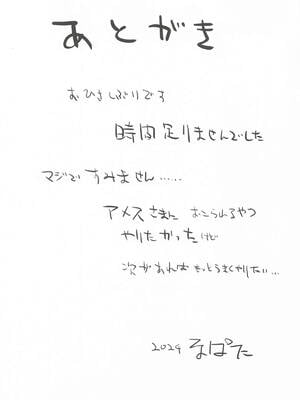 あとがき
おひさしぶりです
時間足りませんでした
マジですみません……
アメスさまに おこられるやつ
やりたかったけど
次があればもっとうまくやりたい…
2024 るぱた